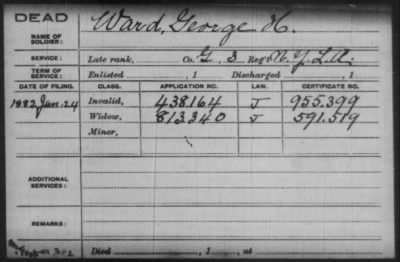 DEAD
NAME OF SOLDIER: Ward, George H.
SERVICE: Late rank, Co. G, 3 Reg't N.Y.L.A.
TERM OF SERVICE: Enlisted , 1 Discharged , 1
DATE OF FILING. CLASS. APPLICATION NO. LAW. CERTIFICATE NO.
1882 Jan. 24 Invalid, 438164 J 955.399
Widow, 813340 J 591.519
Minor,
ADDITIONAL SERVICES:
REMARKS:
Died , 1 , at